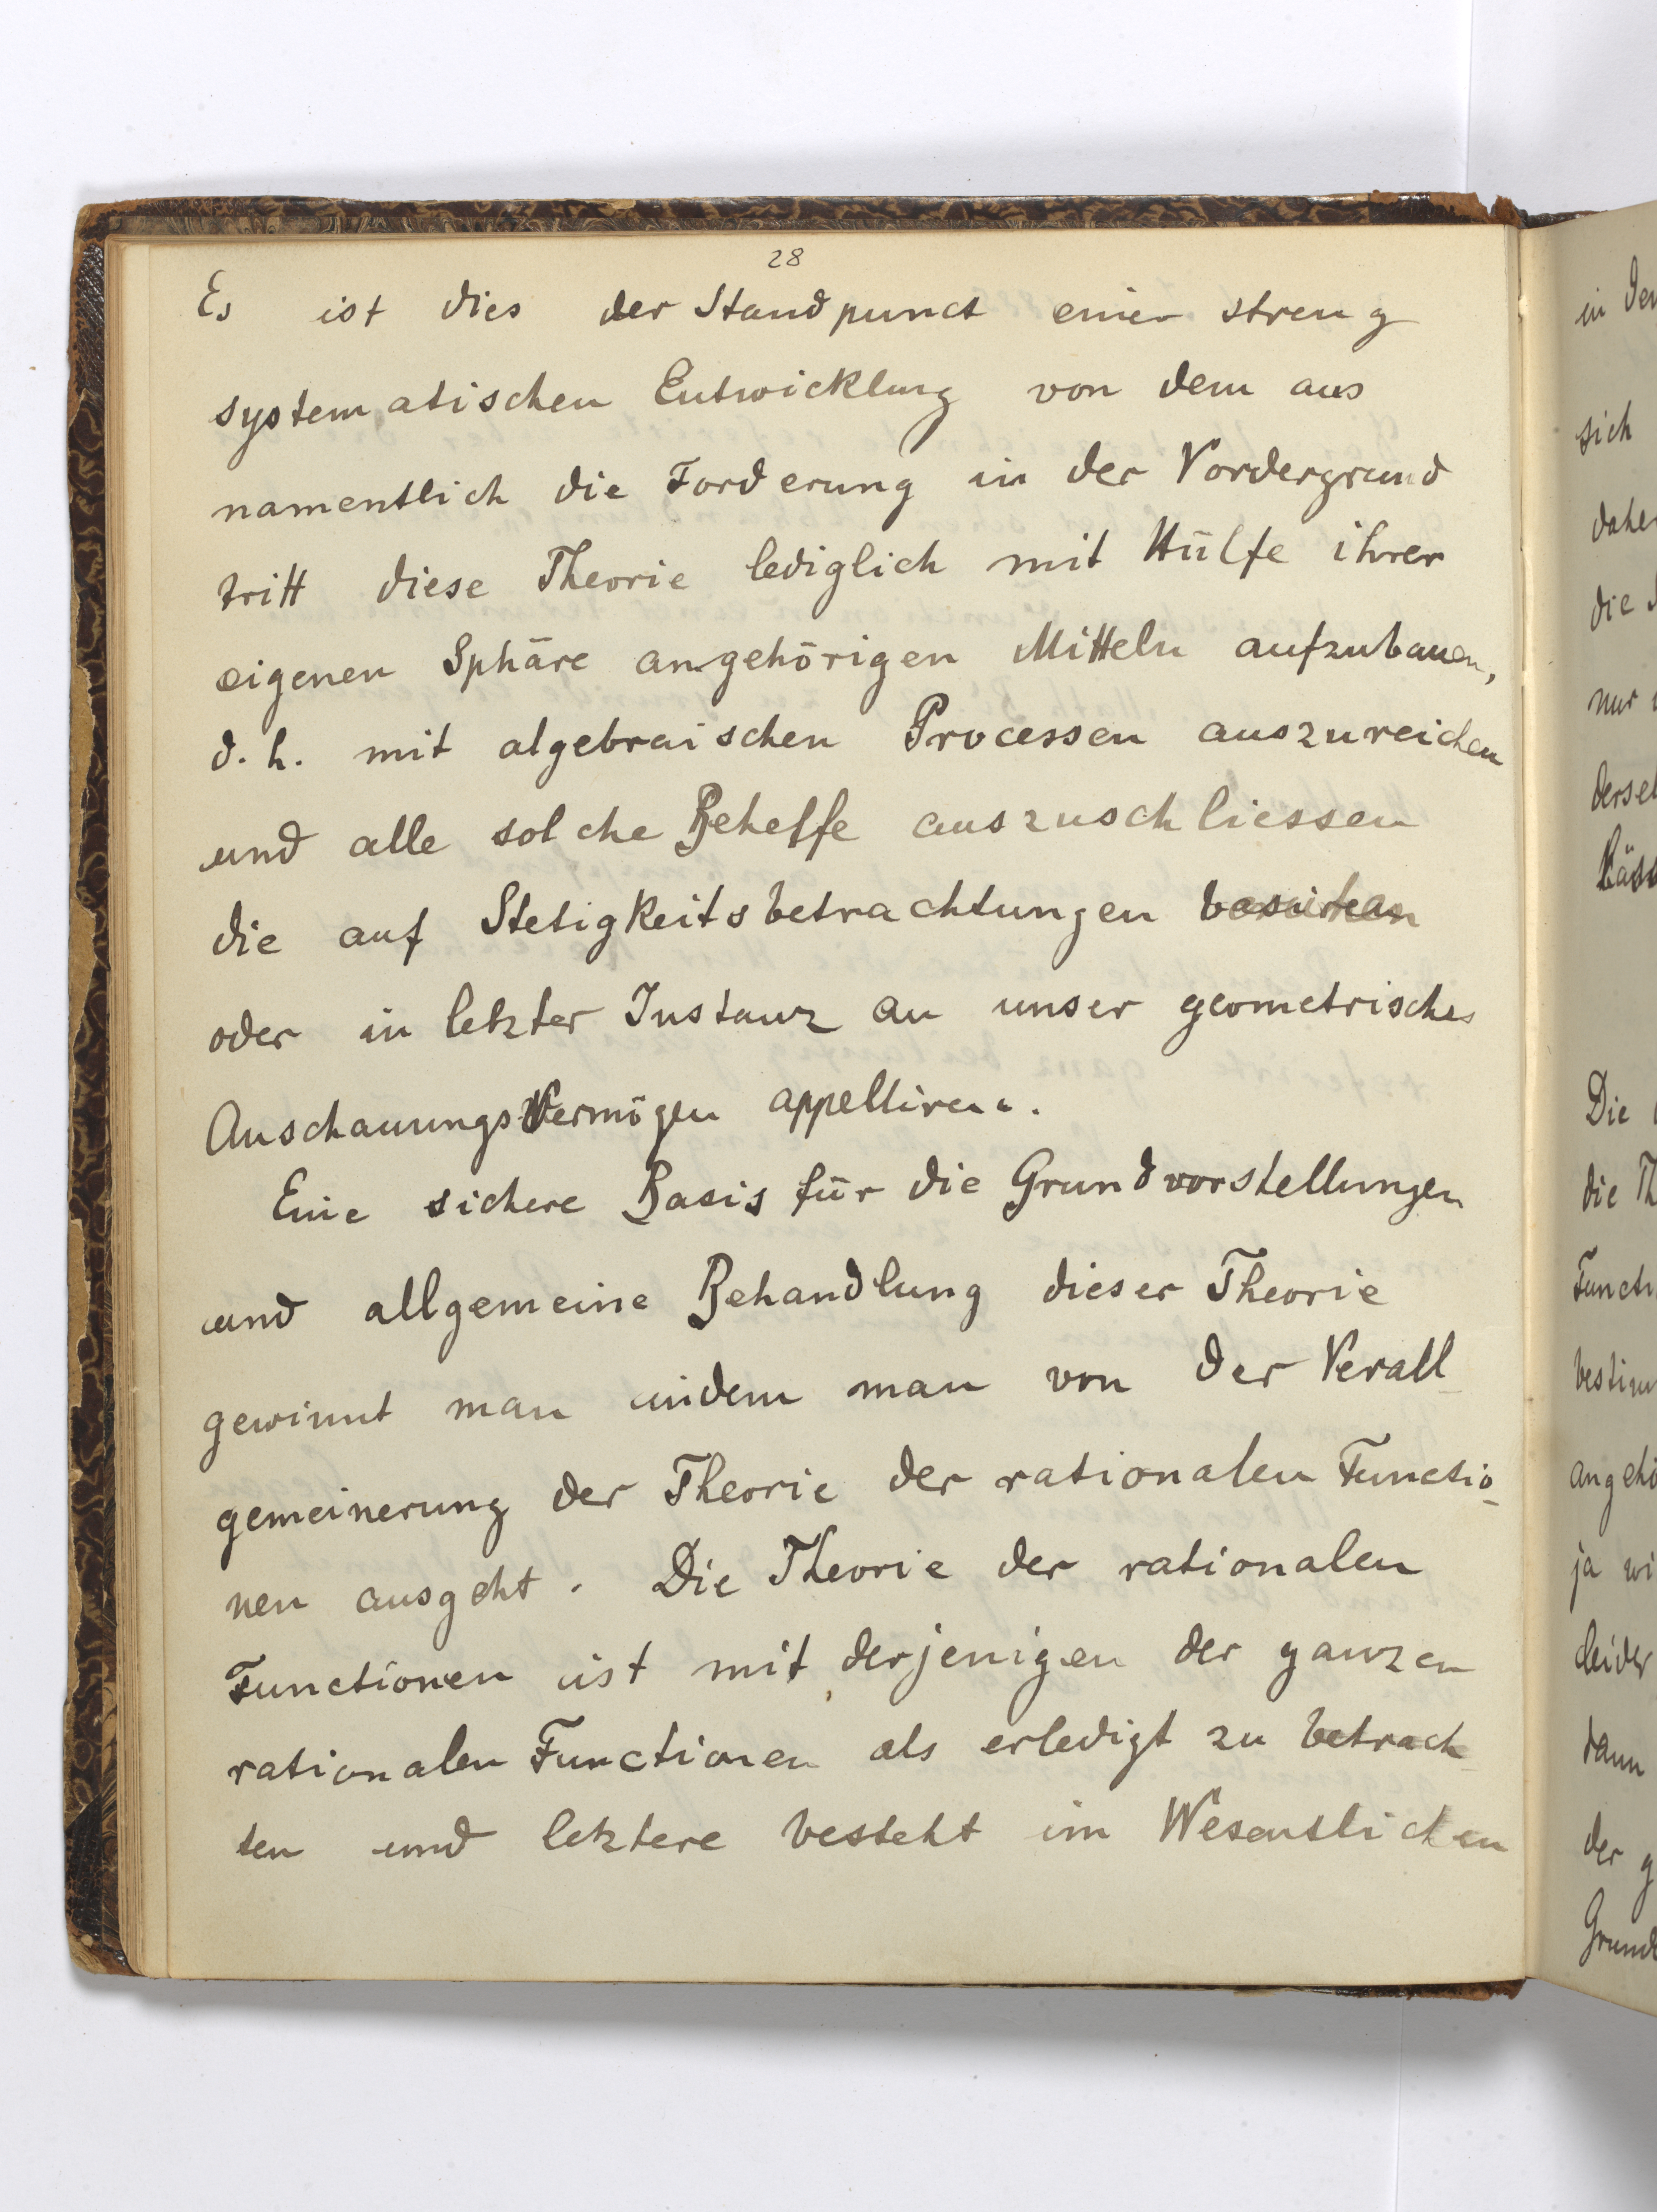 28
Es ist dies der Standpunct einer streng
systematischen Entwicklung von dem aus
namentlich die Forderung in der Vordergrund
tritt diese Theorie lediglich mit Hülfe ihrer
eigenen Sphäre angehörigen Mitteln aufzubauen,
d. h. mit algebraischen Processen auszureichen
und alle solche Behelfe auszuschliessen
die auf Stetigkeitsbetrachtungen
oder in letzter Instanz an unser geometrisches
Anschauungsvermögen appelliren.
Eine sichere Basis für die Grundvorstellungen
und allgemeine Behandlung dieser Theorie
gewinnt man indem man von der Verall-
gemeinerung der Theorie der rationalen Functio-
nen ausgeht. Die Theorie der rationalen
Functionen ist mit derjenigen der ganzen
rationalen Functionen als erledigt zu betrach-
ten und letztere besteht im Wesentlichen
in
sich
die
nur
Die
die
ja
dann
der